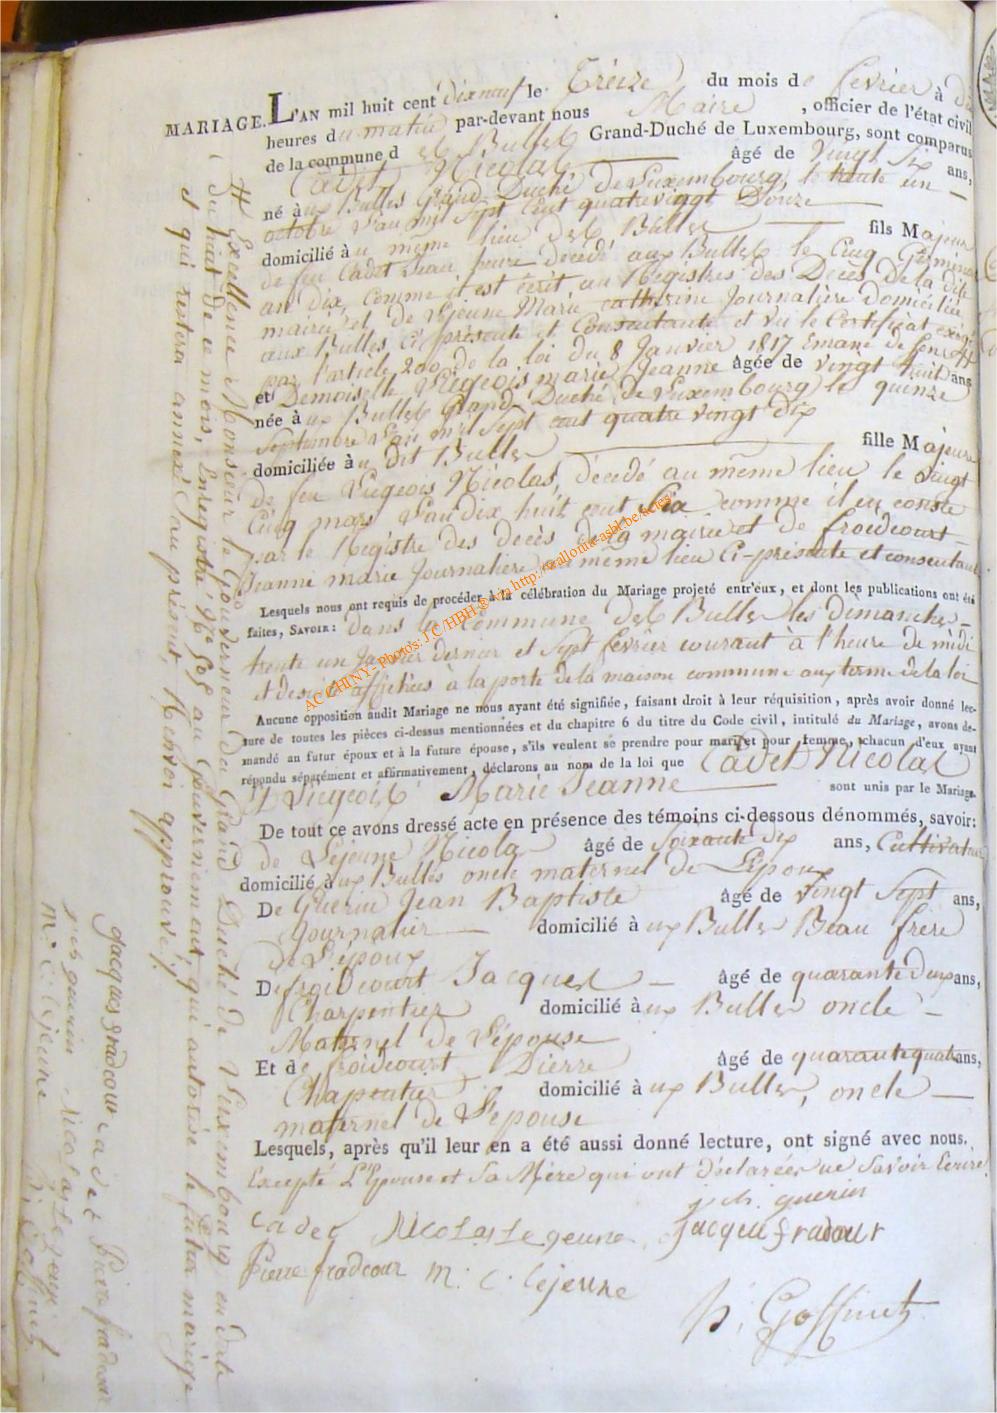 MARIAGE. L'AN mil huit cent dix neuf le Treize du mois de fevrier à dix
heures du matin par-devant nous Maire , officier de l'état civil
de la commune d es Bulles Grand-Duché de Luxembourg, sont comparus
Cadet Nicolas âgé de Vingt Six ans,
né à ux Bulles Grand Duché de Luxembourg, le trente un
octobre l'an mil Sept Cent quatre vingt Douze
domicilié à u même lieu des Bulles fils Majeur
de feu Cadet Jean pierre Décédé aux Bulles le Cinq Germinal
an dix, comme il est écrit au Registres des Décès de la dite
mairie et de Lejeune Marie catherine Journalière domiciliée
aux Bulles, Ci présente et Consentante et vu le Certificat exigé
par l'article 200 de la loi du 8 Janvier 1817 Emané de Son #
et Demoiselle Liegeois marie Jeanne âgée de vingt huit ans
née à ux Bulles Grand Duché de Luxembourg le quinze
Septembre l'an mil Sept cent quatre vingt dix
domiciliée à u dit Bulles fille Majeure
de feu Liegeois Nicolas, décedé au même lieu le vingt
Cinq mars l'an dix huit cent Six comme il en conste
par le Registre des decès de la mairie et de froidcourt
Jeanne marie Journaliere au même lieu Ci-présente et consentante
Lesquels nous ont requis de procéder à la célébration du Mariage projeté entr'eux, et dont les publications ont été
faites, SAVOIR : dans la Commune des Bulles les dimanches
trente un Janvier dernier et Sept fevrier courant à l'heure de midi
et desuite affichées à la porte de la maison commune aux terme de la loi
Aucune opposition audit Mariage ne nous ayant été signifiée, faisant droit à leur réquisition, après avoir donné lec-
ture de toutes les pièces ci-dessus mentionnées et du chapitre 6 du titre du Code civil, intitulé du Mariage, avons de-
mandé au futur époux et à la future épouse, s'ils veulent se prendre pour mari et pour femme, chacun d'eux ayant
répondu séparément et affirmativement, déclarons au nom de la loi que Cadet Nicolas
et Liegeois Marie Jeanne sont unis par le Mariage.
De tout ce avons dressé acte en présence des témoins ci-dessous dénommés, savoir:
de Lejeune Nicolas âgé de soixante dix ans, Cultivateur
domicilié à ux Bulles oncle maternel de L'époux
De Guerin Jean Baptiste âgé de vingt Sept ans,
Journalier domicilié à ux Bulles Beau frere
de L'époux
De froidcourt Jacques âgé de quarante deux ans,
Charpentier domicilié à ux Bulles oncle
Maternel de L'épouse
Et de froidcourt Pierre âgé de quarante quatre ans,
Charpentier domicilié à ux Bulles, oncle
maternel de L'épouse
Lesquels, après qu'il leur en a été aussi donné lecture, ont signé avec nous.
Excepté L'Epouse et Sa Mère qui ont déclarées ne Savoir Ecrire
j. b. guerin
Cadet Nicolas Lejeune Jacques fradcour
Pierre fradcour m. C. lejeune
Goffinet
# Excellence Monsieur le Gouverneur du Grand Duché de Luxembourg en date
du huit de ce mois, Enregistré au Gouvernement, qui autorise le futur mariage
et qui restera annexé au présent, Renvoi approuvé./.
Jacques fradcour Cadet Pierre fradcour
guerin Nicolas Lejeune
m. C. lejeune Goffinet
AC CHINY - Photos: J C /HBH © via http://wallonia-asbl.be/actes/